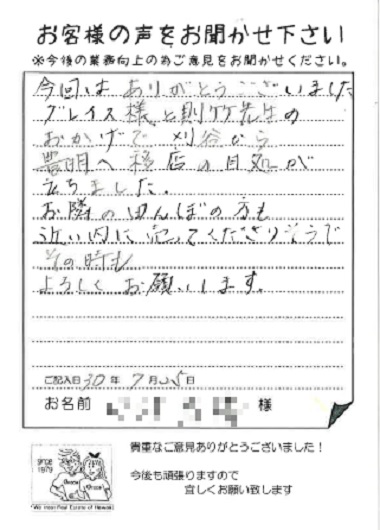 お客様の声をお聞かせ下さい
※今後の業務向上の為ご意見をお聞かせください。
今回はありがとうございました
グレイス様と則竹先生の
おかげで 刈谷から
豊明へ移店の目処が
立ちました。
お隣のゆんぼの方も
近い内に売ってくださりそうで
その時も
よろしくお願いします。
ご記入日 30 年 7 月 25 日
お名前 様
since
1979
貴重なご意見ありがとうございました!
今後も頑張りますので
宜しくお願い致します